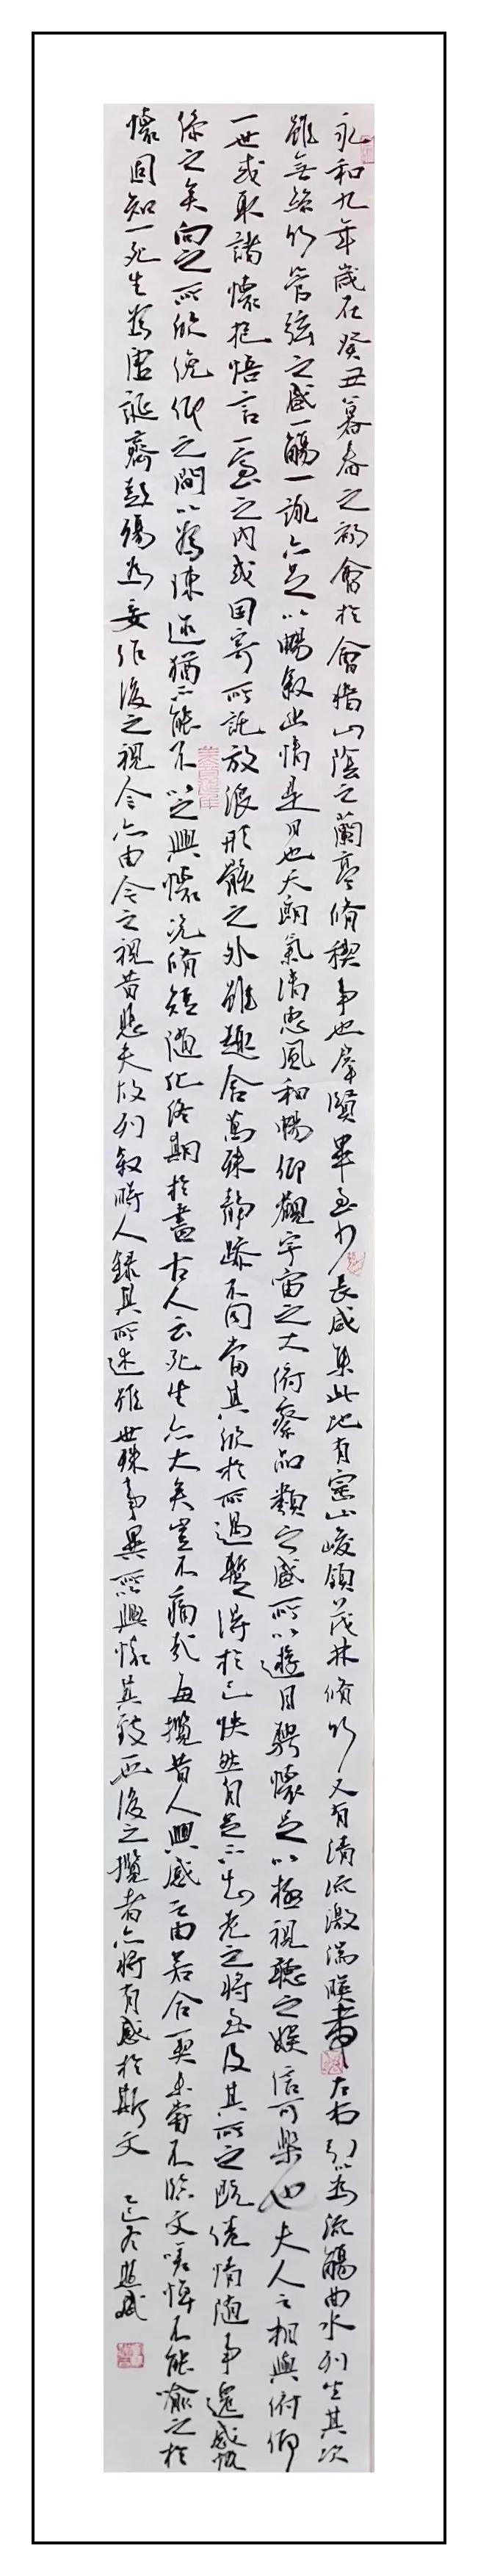 永和九年歲在癸丑暮春之初會於會稽山陰之蘭亭脩稧事也羣賢畢至少長咸集此地有崇山峻領茂林脩竹又有清流激湍暎帶左右引以為流觴曲水列坐其次
雖無絲竹管弦之盛一觴一詠亦足以暢敘幽情是日也天朗氣清惠風和暢仰觀宇宙之大俯察品類之盛所以遊目騁懷足以極視聽之娛信可樂也夫人之相與俯仰
一世或取諸懷抱悟言一室之內或因寄所託放浪形骸之外雖趣舍萬殊靜躁不同當其欣於所遇暫得於己快然自足不知老之將至及其所之既惓情隨事遷感慨
係之矣向之所欣俛仰之間以為陳迹猶不能不以之興懷況脩短隨化終期於盡古人云死生亦大矣豈不痛哉每攬昔人興感之由若合一契未嘗不臨文嗟悼不能喻之於
懷固知一死生為虛誕齊彭殤為妄作後之視今亦由今之視昔悲夫故列敘時人錄其所述雖世殊事異所以興懷其致一也後之攬者亦將有感於斯文 己亥冬